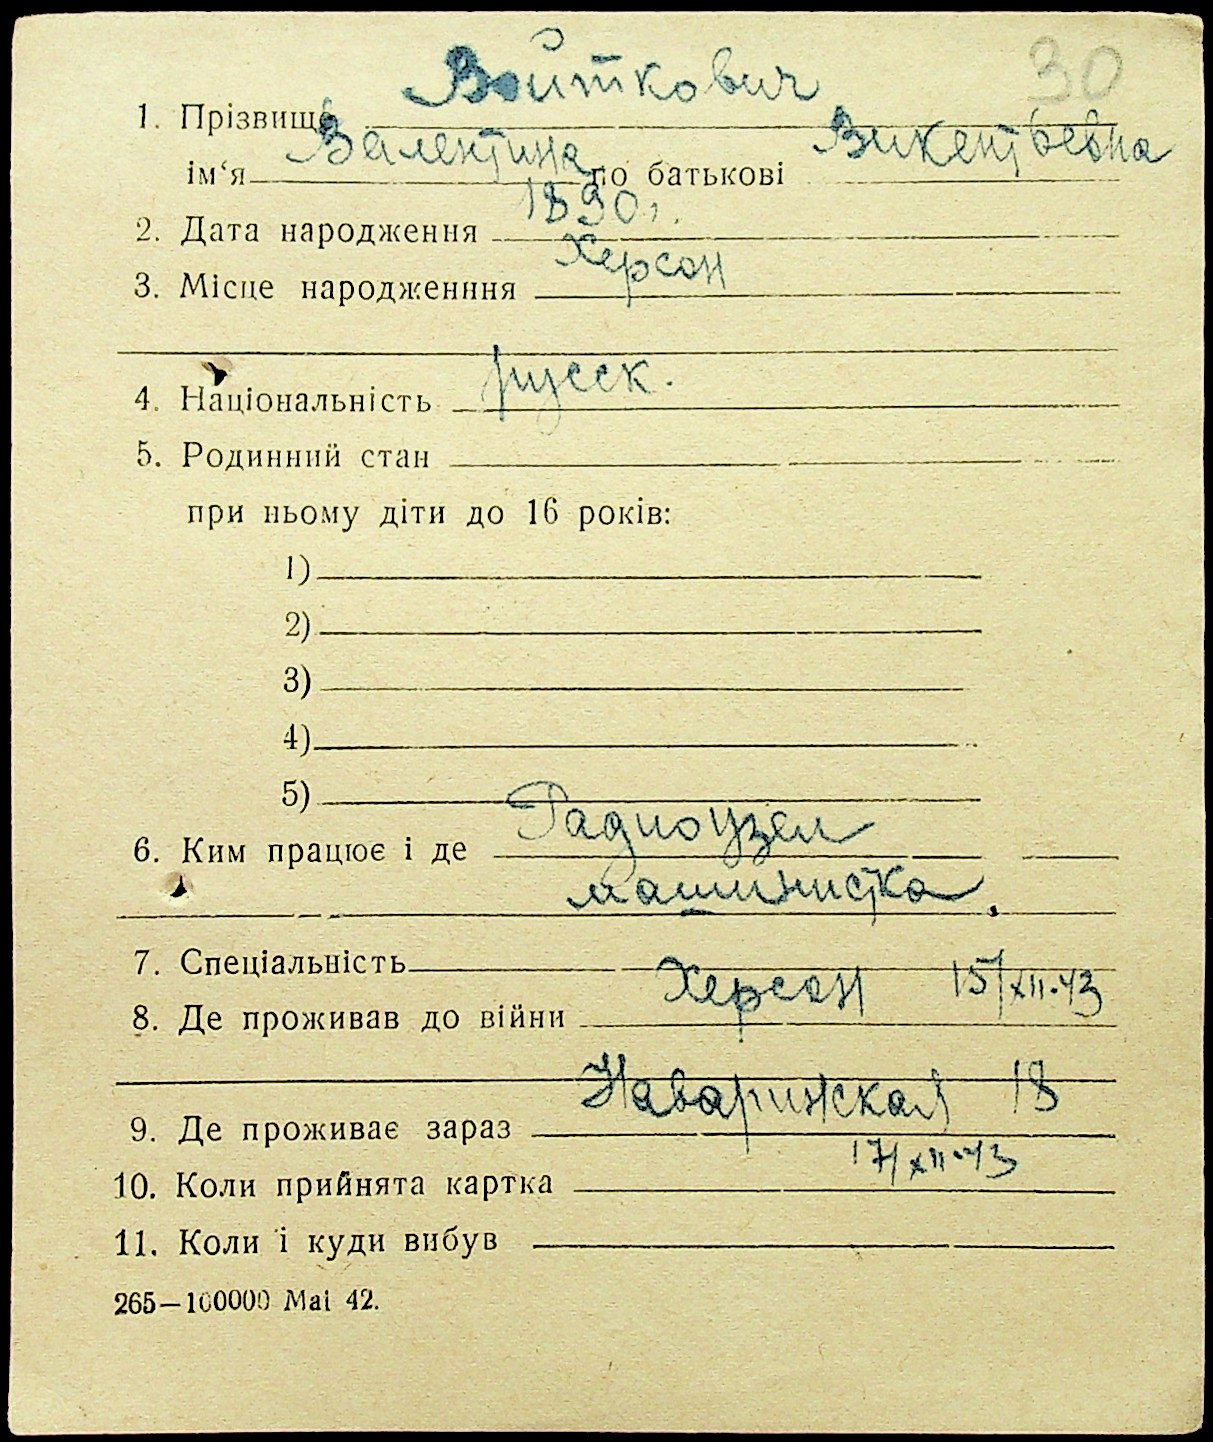 30
Войткович
1. Прізвище
Валентина Викентьевна
ім‘я по батькові
1890 г.
2. Дата народження
Херсон
3. Місце народженння
русск.
4. Національність
5. Родинний стан
при ньому діти до 16 років:
1)
2)
3)
4)
5)
Радиоузел
6. Ким працює і де
машинистка.
7. Спеціальність
Херсон 15/XII-43
8. Де проживав до війни
Наваринская 18
9. Де проживає зараз
17/XII-43
10. Коли прийнята картка
11. Коли і куди вибув
265—100000 Mai 42.